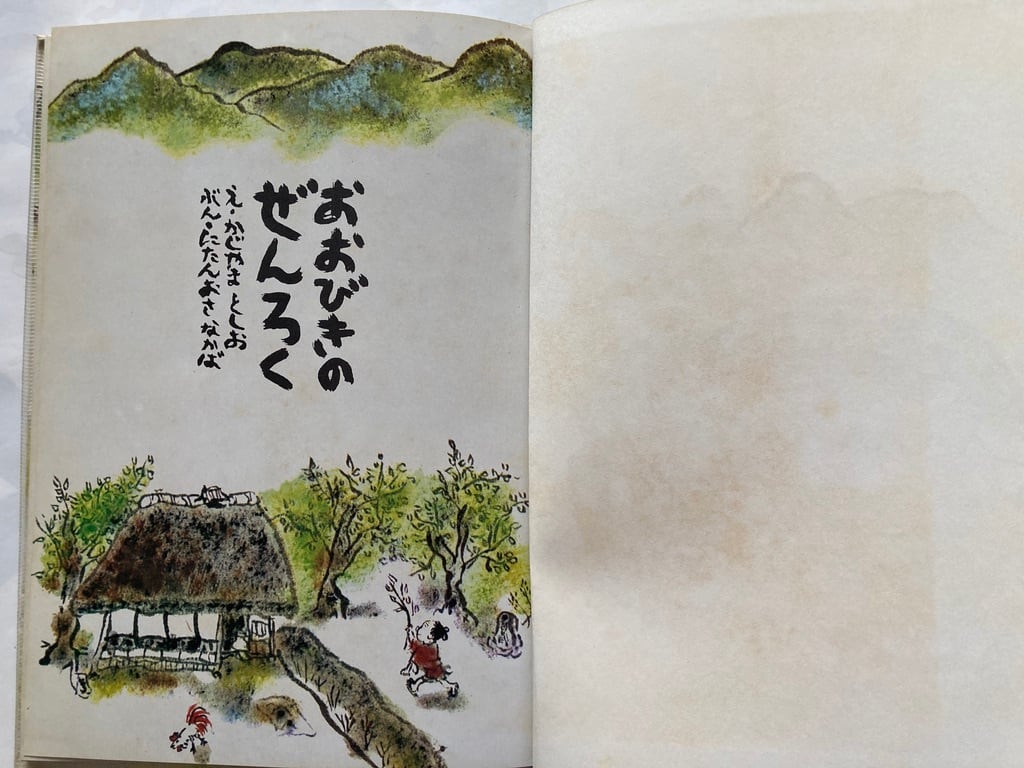 おおびきの
ぜんろく
え・かじやま としお
ぶん・にたんおさ なかば